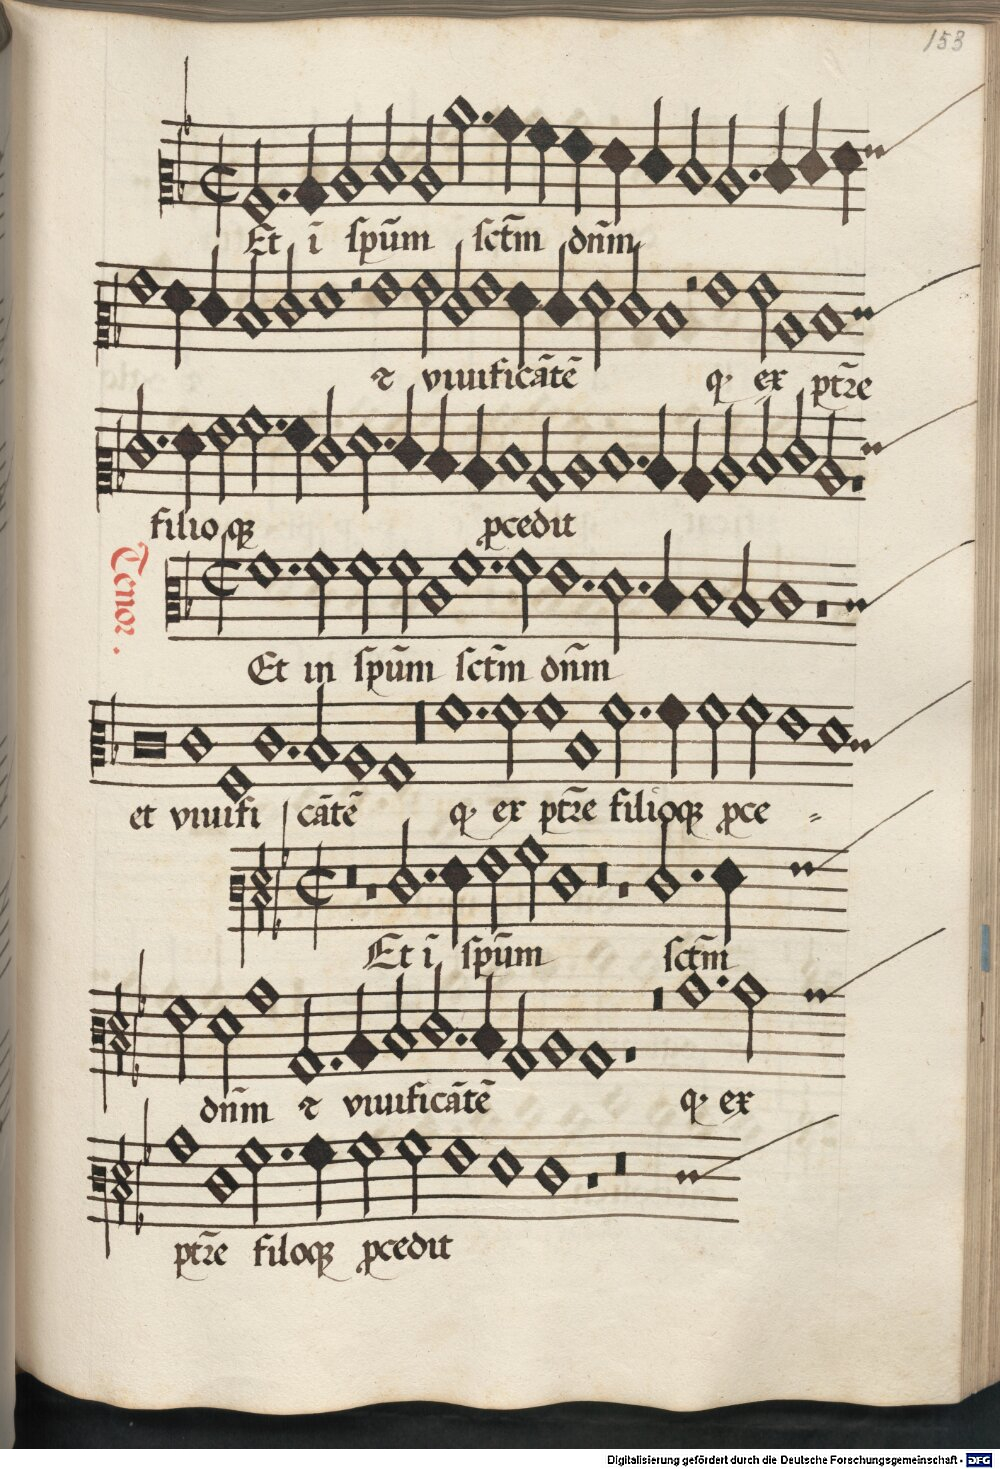 153
Et ī sp̄um sct̄m dn̄m
⁊ viuificātē q. ex pt̄re
filioqꝫ ꝓcedit
Tenor.
Et in sp̄um sct̄m dn̄m
et viuifi | cātē q. ex pt̄re filioqꝫ ꝓce =
Et ī sp̄um sct̄m
dn̄m ⁊ viuificātē q. ex
pt̄re filoqꝫ ꝓcedit
Digitalisierung gefördert durch die Deutsche Forschungsgemeinschaft - DFG